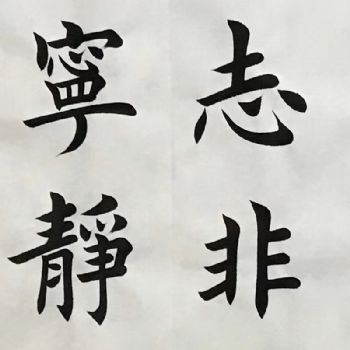 志非
寧靜